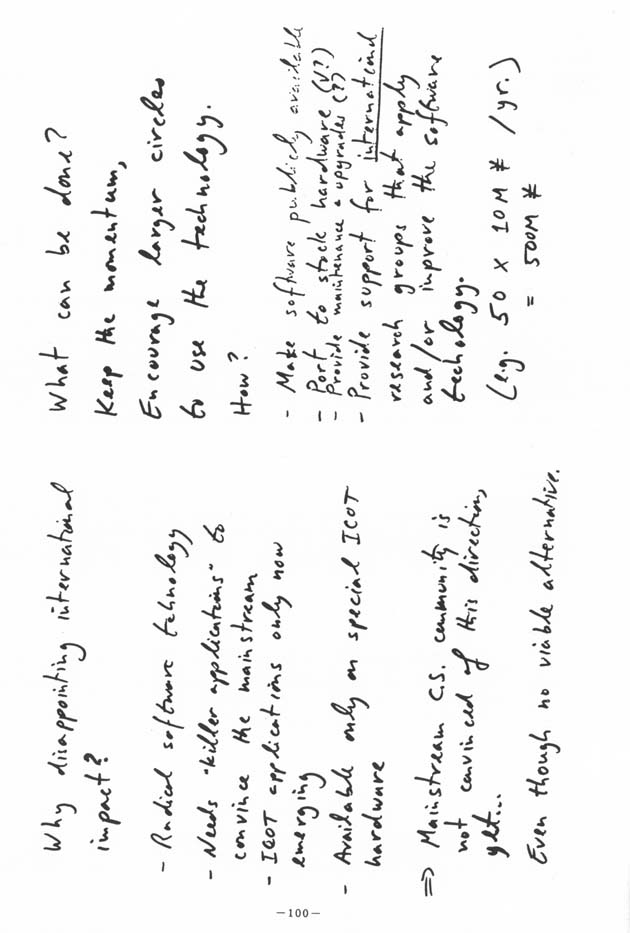 Why disappointing international
impact?
- Radical software tehnology
- Needs "killer applications" to
convince the mainstream
- ICOT applications only now
emerging
- Available only on special ICOT
hardware
⇒ Mainstream C.S. community is
not convinced of this direction,
yet...
Even though no viable alternative.
What can be done?
Keep the momentum,
Encourage larger circles
to use the technology.
How?
- Make software publicly available
- Port to stock hardware (V?)
- Provide maintenance & upgrades (??)
- Provide support for international
research groups that apply
and/or improve the software
techology.
(e.g. 50 × 10M ¥ /yr.)
= 500M ¥
-100-